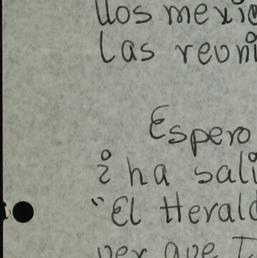 llos mexic
las reuni
Espero
¿ ha sali
"El Herald
ver que I